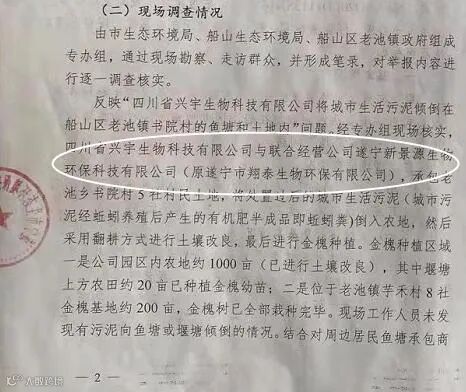 （二）现场调查情况
由市生态环境局、船山生态环境局、船山区老池镇政府组成
专办组，通过现场勘察、走访群众，并形成笔录，对举报内容进
行逐一调查核实。
反映“四川省兴宇生物科技有限公司将城市生活污泥倾倒在
船山区老池镇书院村的鱼塘和土地内”问题。经专办组现场核实，
四川省兴宇生物科技有限公司与联合经营公司遂宁新景源生物
环保科技有限公司（原遂宁市翔泰生物环保有限公司），承包老
池乡书院村5社村民土地，将处置过后的城市生活污泥（城市污
泥经蚯蚓养殖后产生的有机肥半成品即蚯蚓粪）倒入农地，然后
采用翻耕方式进行土壤改良，最后进行金槐种植。金槐种植区域
一是公司园区内农地约1000亩（已进行土壤改良），其中堰塘
上方农田约20亩已种植金槐幼苗；二是位于老池镇芋禾村8社
金槐基地约200亩，金槐树已全部栽种完毕。现场工作人员未发
现有污泥向鱼塘或堰塘倾倒的情况。结合对周边居民鱼塘承包商
— 2 —